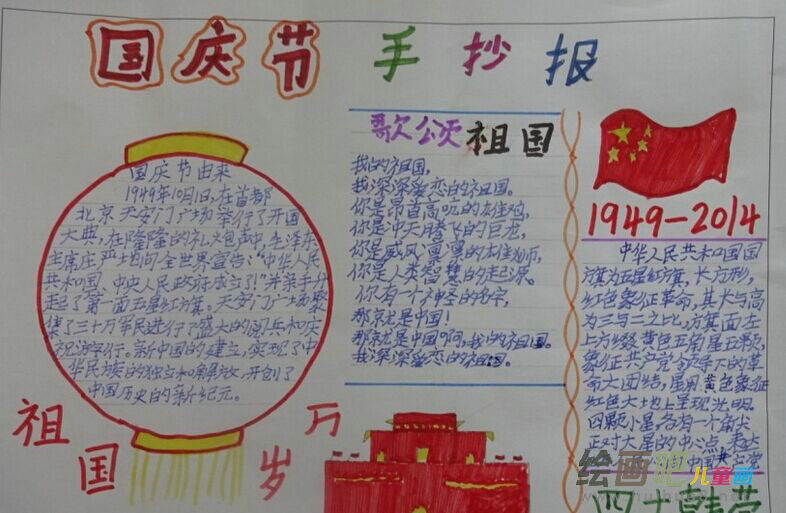 国庆节手抄报
国庆节由来
1949年10月1日,在首都
北京天安门广场举行了开国
大典,在隆隆的礼炮声中,毛泽东
主席庄严地向全世界宣告:"中华人民
共和国、中央人民政府成立了!"并亲手升
起了第一面五星红旗。天安门广场聚
集了三十万军民进行了盛大的阅兵和庆
祝游行。新中国的建立,实现了中
华民族的独立和解放,开创了
中国历史的新纪元。
祖国万岁
歌颂祖国
我的祖国,
我深深爱恋的祖国。
你是昂首高吭的雄鸡,
你是冲天腾飞的巨龙,
你是威风凛凛的雄狮,
你是人类智慧的起源。
你有一个神圣的名字,
那就是中国!
那就是中国啊,我的祖国。
我深深爱恋的祖国。
1949-2014
中华人民共和国国
旗为五星红旗,长方形,
红色象征革命,其长与高
为三与二之比,旗面左
上方缀黄色五角星五颗,
象征共产党领导下的革
命大团结,星用黄色象征
红色大地上呈现光明。
四颗小星各有一个角尖
正对大星的中心点,表达
中国共产党
绘画吧儿童画